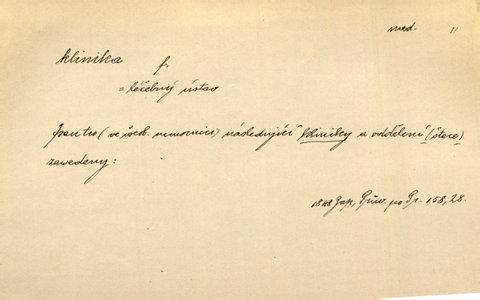 med. 11
klinika f.
= léčebný ústav
Jsau tu (ve všeob. nemocnici) následující kliniky a oddělení (štace)
zawedeny:
1848 Zap, Průw. po Pr. 158, 28.